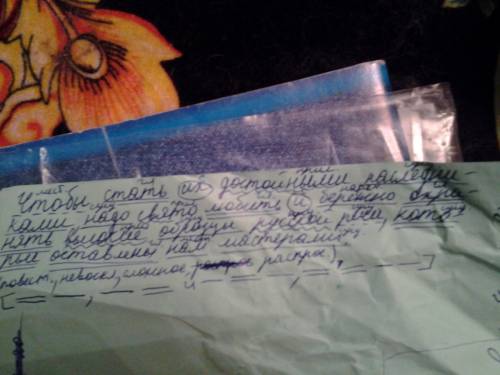 Чтобы стать их достойными наследни-
ками надо свято любить и бережно охра-
нять высокие образцы русской речи, кото-
рые оставлены нам мастерами.
(повест., невоскл., сложное, распрос.),